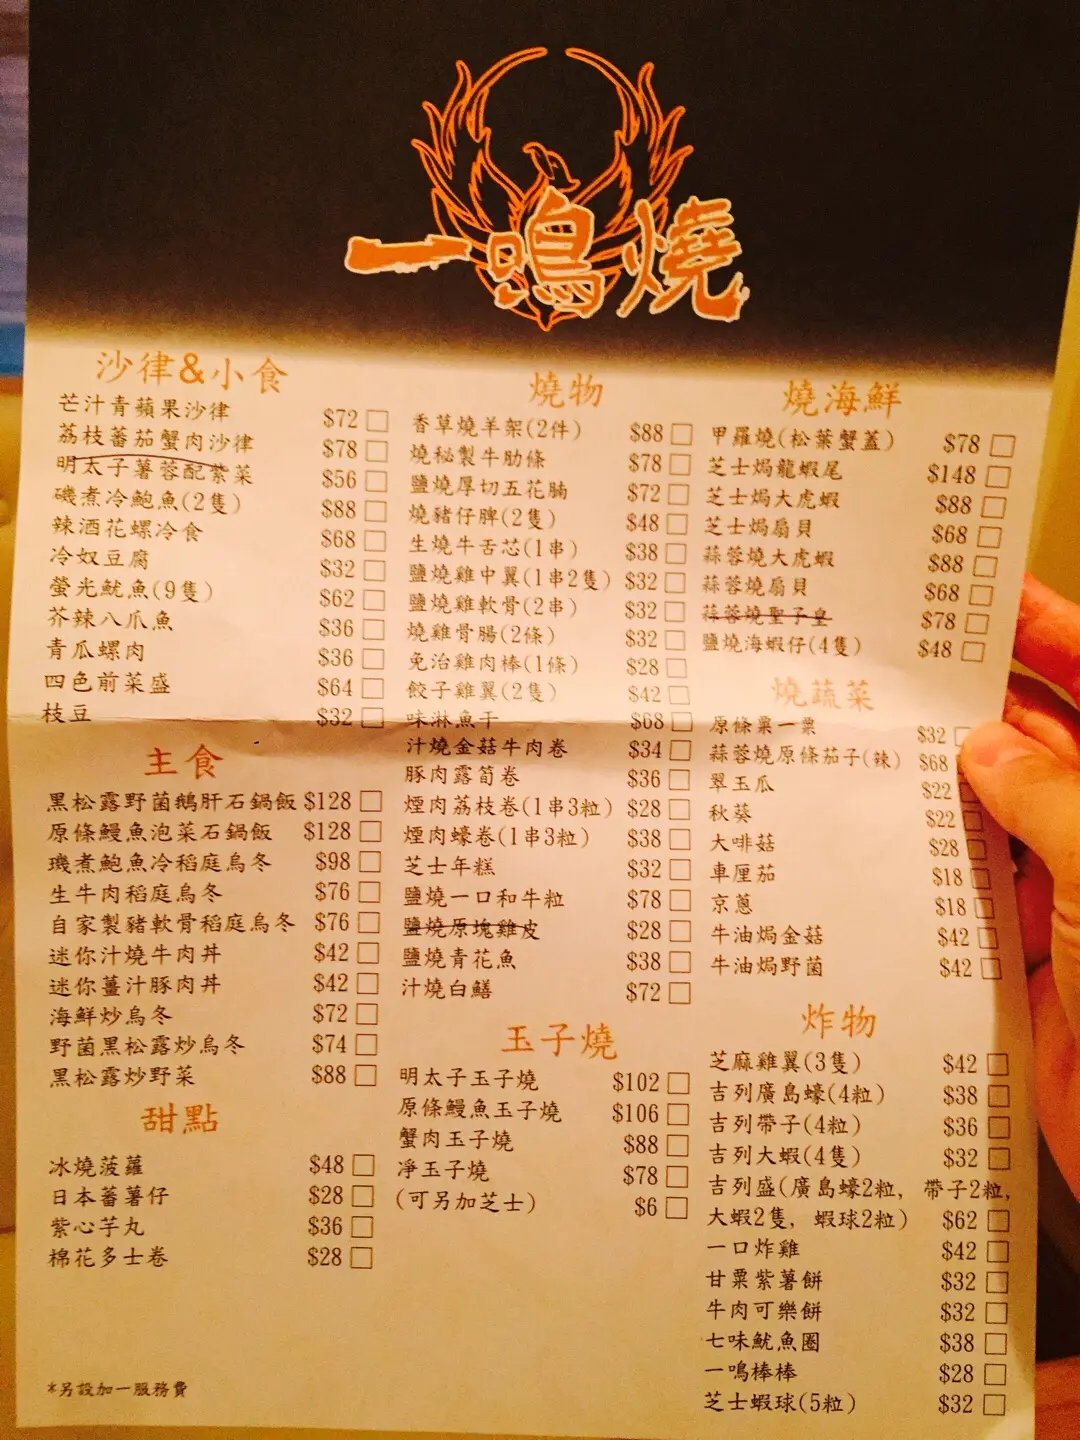 一鳴燒
沙律&小食
芒汁青蘋果沙律 $72
荔枝蕃茄蟹肉沙律 $78
明太子薯蓉配紫菜 $56
磯煮冷鮑魚(2隻) $88
辣酒花螺冷食 $68
冷奴豆腐 $32
螢光魷魚(9隻) $62
芥辣八爪魚 $36
青瓜螺肉 $36
四色前菜盛 $64
枝豆 $32
主食
黑松露野菌鵝肝石鍋飯 $128
原條鰻魚泡菜石鍋飯 $128
磯煮鮑魚冷稻庭烏冬 $98
生牛肉稻庭烏冬 $76
自家製豬軟骨稻庭烏冬 $76
迷你汁燒牛肉丼 $42
迷你薑汁豚肉丼 $42
海鮮炒烏冬 $72
野菌黑松露炒烏冬 $74
黑松露炒野菜 $88
甜點
冰燒菠蘿 $48
日本蕃薯仔 $28
紫心芋丸 $36
棉花多士卷 $28
*另設加一服務費
燒物
香草燒羊架(2件) $88
燒秘製牛肋條 $78
鹽燒厚切五花腩 $72
燒豬仔脾(2隻) $48
生燒牛舌芯(1串) $38
鹽燒雞中翼(1串2隻) $32
鹽燒雞軟骨(2串) $32
燒雞骨腸(2條) $32
免治雞肉棒(1條) $28
餃子雞翼(2隻) $42
味淋魚干 $68
汁燒金菇牛肉卷 $34
豚肉露筍卷 $36
煙肉荔枝卷(1串3粒) $28
煙肉蠔卷(1串3粒) $38
芝士年糕 $32
鹽燒一口和牛粒 $78
鹽燒原塊雞皮 $28
鹽燒青花魚 $38
汁燒白鱔 $72
玉子燒
明太子玉子燒 $102
原條鰻魚玉子燒 $106
蟹肉玉子燒 $88
淨玉子燒 $78
(可另加芝士) $6
燒海鮮
甲羅燒(松葉蟹蓋) $78
芝士焗龍蝦尾 $148
芝士焗大虎蝦 $88
芝士焗扇貝 $68
蒜蓉燒大虎蝦 $88
蒜蓉燒扇貝 $68
蒜蓉燒聖子皇 $78
鹽燒海蝦仔(4隻) $48
燒蔬菜
原條粟一粟 $32
蒜蓉燒原條茄子(辣) $68
翠玉瓜 $22
秋葵 $22
大啡菇 $28
車厘茄 $18
京蔥 $18
牛油焗金菇 $42
牛油焗野菌 $42
炸物
芝麻雞翼(3隻) $42
吉列廣島蠔(4粒) $38
吉列帶子(4粒) $36
吉列大蝦(4隻) $32
吉列盛(廣島蠔2粒, 帶子2粒,
大蝦2隻, 蝦球2粒) $62
一口炸雞 $42
甘粟紫薯餅 $32
牛肉可樂餅 $32
七味魷魚圈 $38
一鳴棒棒 $28
芝士蝦球(5粒) $32